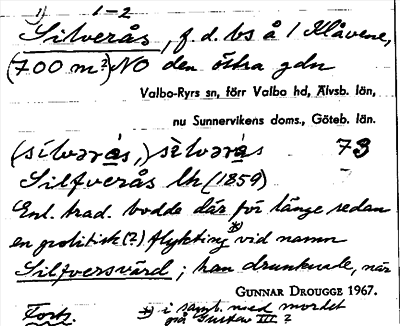 1) 1-2
Silverås, f d. bs å 1 Klåvene,
(700 m²) NO den östra gdn
Valbo-Ryrs sn, förr Valbo hd, Älvsb. län,
nu Sunnervikens doms., Göteb. län.
(sílvərås,) sìlvərås 73
Silfverås lh (1859)
Enl. trad. bodde där för länge sedan
en politisk (?) flykting *) vid namn
Silfversvärd; han drunknade, när
GUNNAR DROUGGE 1967.
Forts. *) i samb. med mordet
på Gustav III ?